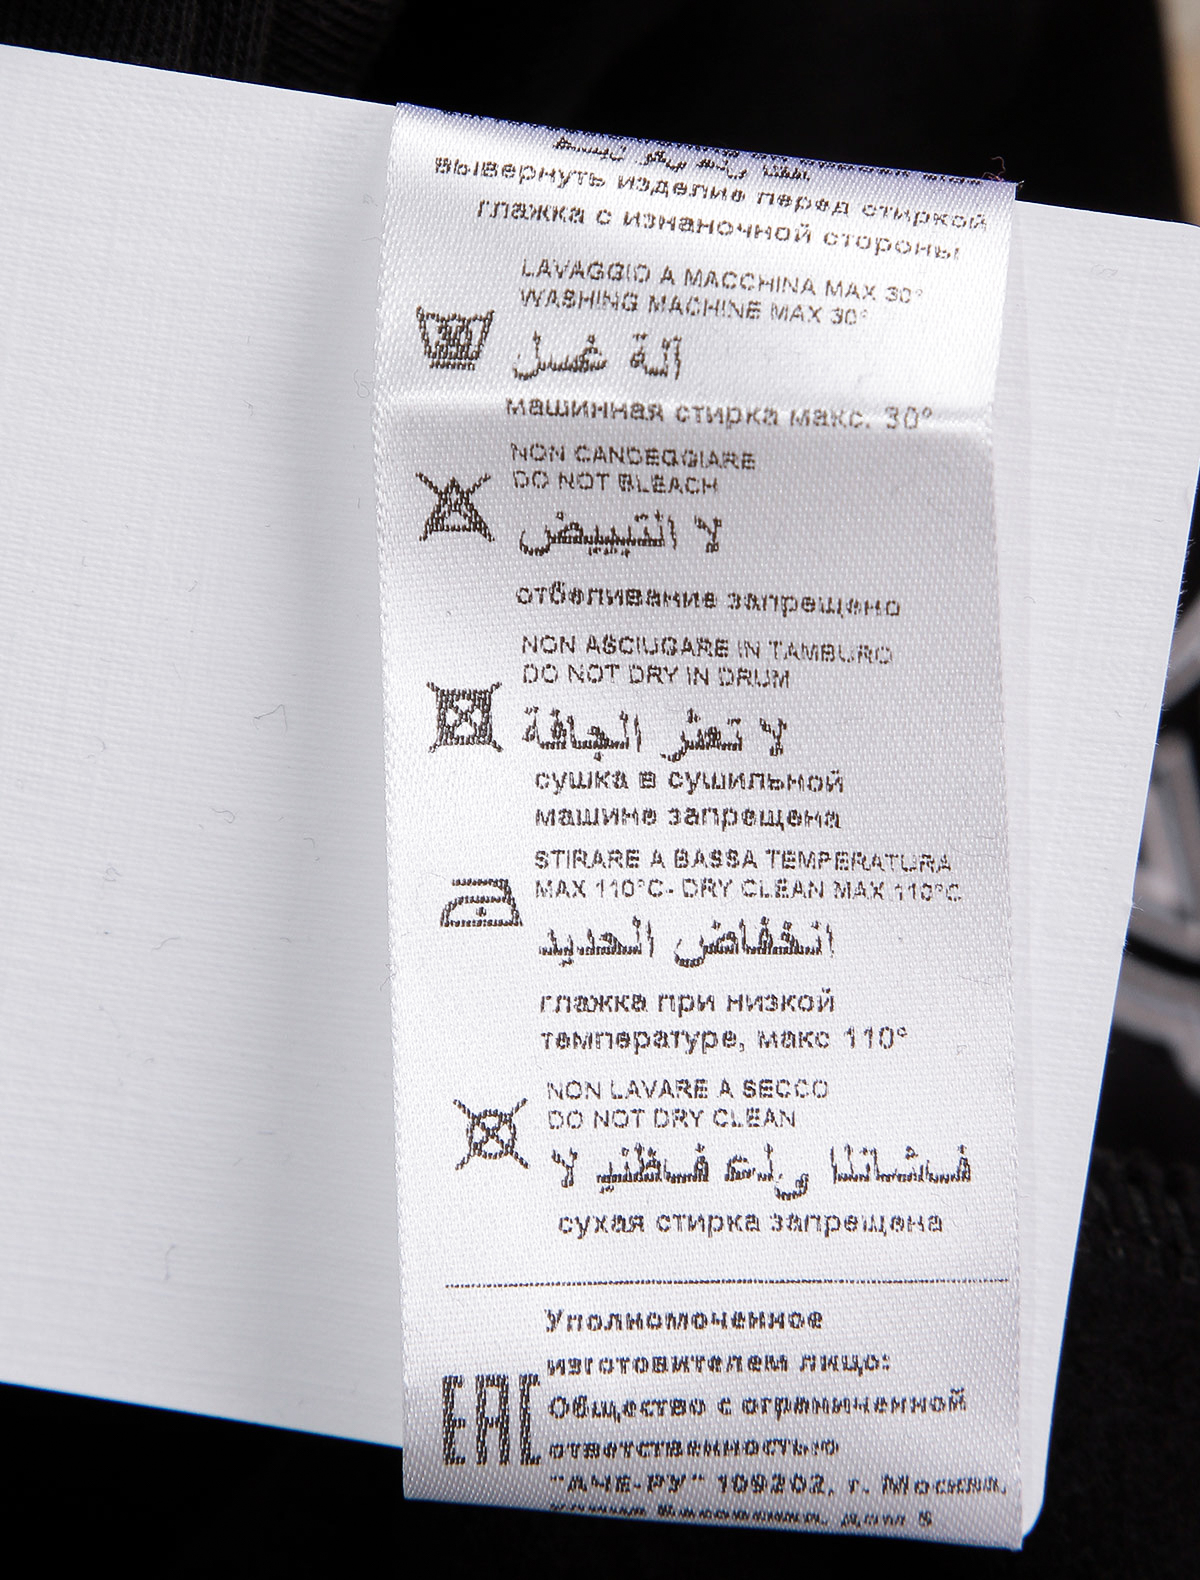 вывернуть изделие перед стиркой
глажка с изнаночной стороны
LAVAGGIO A MACCHINA MAX 30°
WASHING MACHINE MAX 30°
30
آلة غسل
машинная стирка макс. 30°
NON CANDEGGIARE
DO NOT BLEACH
لا التبييض
отбеливание запрещено
NON ASCIUGARE IN TAMBURO
DO NOT DRY IN DRUM
لا تعثر الجافة
сушка в сушильной
машине запрещена
STIRARE A BASSA TEMPERATURA
MAX 110°C- DRY CLEAN MAX 110°C
انخفاض الحديد
глажка при низкой
температуре, макс 110°
NON LAVARE A SECCO
DO NOT DRY CLEAN
لا
сухая стирка запрещена
Уполномоченное
изготовителем лицо:
EAC
Общество с ограниченной
ответственностью
"АЧЕ-РУ" 109202, г. Москва,
дом 5